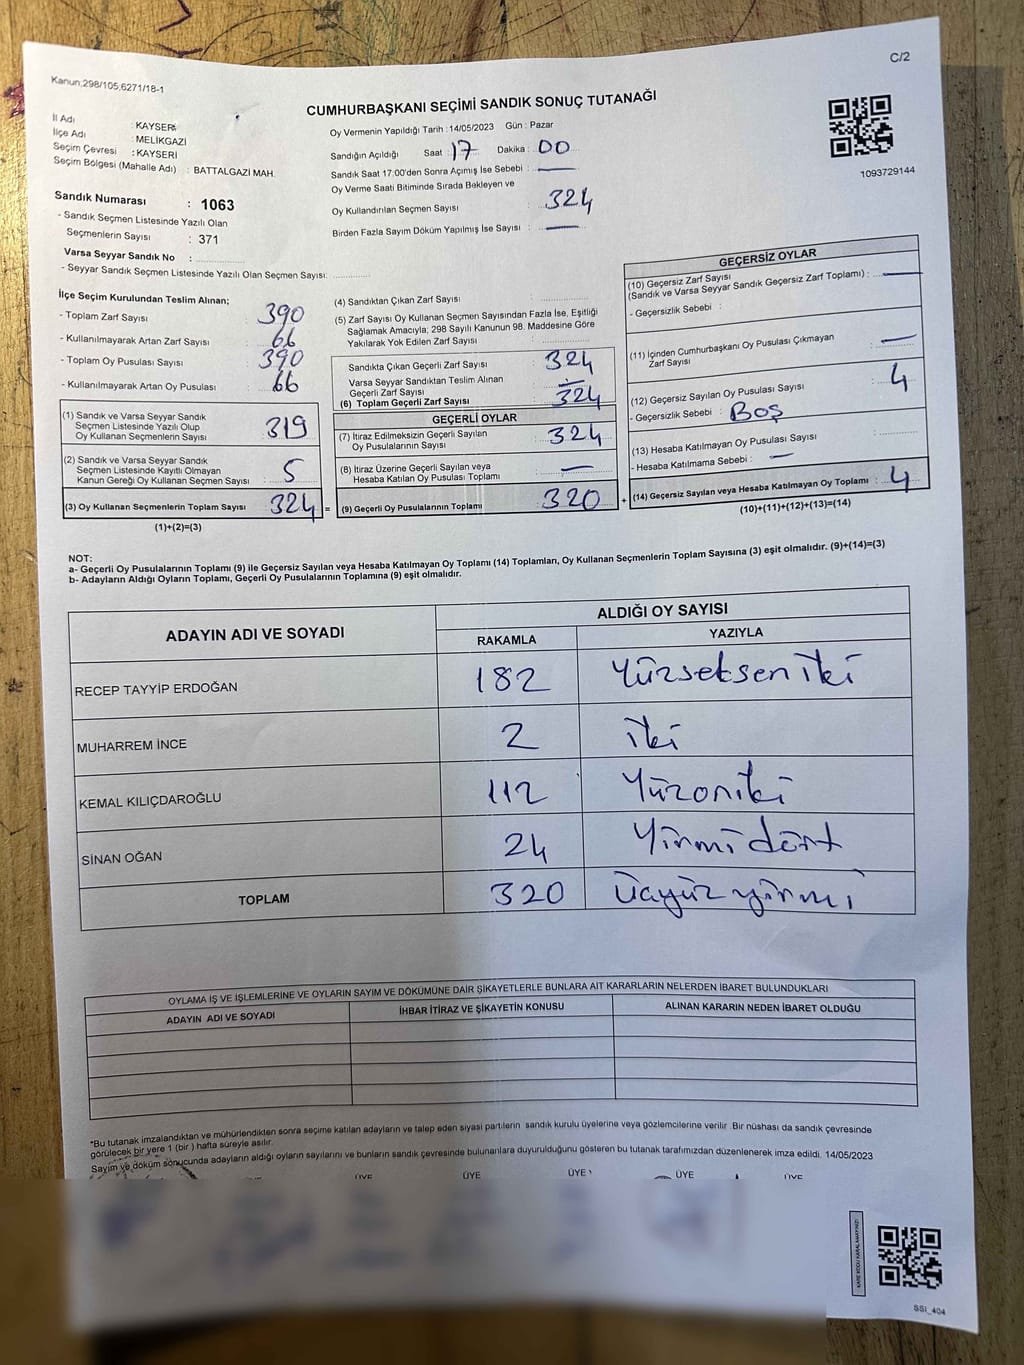 C/2
Kanun:298/105,6271/18-1
CUMHURBAŞKANI SEÇİMİ SANDIK SONUÇ TUTANAĞI
İl Adı : KAYSERİ
İlçe Adı : MELİKGAZİ
Seçim Çevresi : KAYSERİ
Seçim Bölgesi (Mahalle Adı) : BATTALGAZİ MAH.
Oy Vermenin Yapıldığı Tarih :14/05/2023 Gün : Pazar
Sandığın Açıldığı Saat 17 Dakika : 00
Sandık Saat 17:00'den Sonra Açımış İse Sebebi : —
Oy Verme Saati Bitiminde Sırada Bekleyen ve
Oy Kullandırılan Seçmen Sayısı : 324
Birden Fazla Sayım Döküm Yapılmış İse Sayısı : —
1093729144
Sandık Numarası : 1063
- Sandık Seçmen Listesinde Yazılı Olan
Seçmenlerin Sayısı : 371
Varsa Seyyar Sandık No :
- Seyyar Sandık Seçmen Listesinde Yazılı Olan Seçmen Sayısı:
İlçe Seçim Kurulundan Teslim Alınan;
- Toplam Zarf Sayısı : 390
- Kullanılmayarak Artan Zarf Sayısı : 66
- Toplam Oy Pusulası Sayısı : 390
- Kullanılmayarak Artan Oy Pusulası : 66
(1) Sandık ve Varsa Seyyar Sandık
Seçmen Listesinde Yazılı Olup
Oy Kullanan Seçmenlerin Sayısı : 319
(2) Sandık ve Varsa Seyyar Sandık
Seçmen Listesinde Kayıtlı Olmayan
Kanun Gereği Oy Kullanan Seçmen Sayısı : 5
(3) Oy Kullanan Seçmenlerin Toplam Sayısı : 324 =
(1)+(2)=(3)
(4) Sandıktan Çıkan Zarf Sayısı :
(5) Zarf Sayısı Oy Kullanan Seçmen Sayısından Fazla İse, Eşitliği
Sağlamak Amacıyla; 298 Sayılı Kanunun 98. Maddesine Göre
Yakılarak Yok Edilen Zarf Sayısı :
Sandıkta Çıkan Geçerli Zarf Sayısı : 324
Varsa Seyyar Sandıktan Teslim Alınan
Geçerli Zarf Sayısı : —
(6) Toplam Geçerli Zarf Sayısı : 324
GEÇERLİ OYLAR
(7) İtiraz Edilmeksizin Geçerli Sayılan
Oy Pusulalarının Sayısı : 324
(8) İtiraz Üzerine Geçerli Sayılan veya
Hesaba Katılan Oy Pusulası Toplamı : —
(9) Geçerli Oy Pusulalarının Toplamı : 320 +
GEÇERSİZ OYLAR
(10) Geçersiz Zarf Sayısı
(Sandık ve Varsa Seyyar Sandık Geçersiz Zarf Toplamı) : —
- Geçersizlik Sebebi :
(11) İçinden Cumhurbaşkanı Oy Pusulası Çıkmayan
Zarf Sayısı : —
(12) Geçersiz Sayılan Oy Pusulası Sayısı : 4
- Geçersizlik Sebebi : BOŞ
(13) Hesaba Katılmayan Oy Pusulası Sayısı :
- Hesaba Katılmama Sebebi : —
(14) Geçersiz Sayılan veya Hesaba Katılmayan Oy Toplamı : 4
(10)+(11)+(12)+(13)=(14)
NOT:
a- Geçerli Oy Pusulalarının Toplamı (9) ile Geçersiz Sayılan veya Hesaba Katılmayan Oy Toplamı (14) Toplamları, Oy Kullanan Seçmenlerin Toplam Sayısına (3) eşit olmalıdır. (9)+(14)=(3)
b- Adayların Aldığı Oyların Toplamı, Geçerli Oy Pusulalarının Toplamına (9) eşit olmalıdır.
ADAYIN ADI VE SOYADI ALDIĞI OY SAYISI
RAKAMLA YAZIYLA
RECEP TAYYİP ERDOĞAN 182 Yüzseksen iki
MUHARREM İNCE 2 iki
KEMAL KILIÇDAROĞLU 112 Yüzoniki
SİNAN OĞAN 24 Yirmi dört
TOPLAM 320 Üçyüz yirmi
OYLAMA İŞ VE İŞLEMLERİNE VE OYLARIN SAYIM VE DÖKÜMÜNE DAİR ŞİKAYETLERLE BUNLARA AİT KARARLARIN NELERDEN İBARET BULUNDUKLARI
ADAYIN ADI VE SOYADI İHBAR İTİRAZ VE ŞİKAYETİN KONUSU ALINAN KARARIN NEDEN İBARET OLDUĞU
*Bu tutanak imzalandıktan ve mühürlendikten sonra seçime katılan adayların ve talep eden siyasi partilerin sandık kurulu üyelerine veya gözlemcilerine verilir. Bir nüshası da sandık çevresinde
görülecek bir yere 1 (bir ) hafta süreyle asılır.
Sayım ve döküm sonucunda adayların aldığı oyların sayılarını ve bunların sandık çevresinde bulunanlara duyurulduğunu gösteren bu tutanak tarafımızdan düzenlenerek imza edildi. 14/05/2023
ÜYE ÜYE ÜYE ÜYE ÜYE
SSI_404